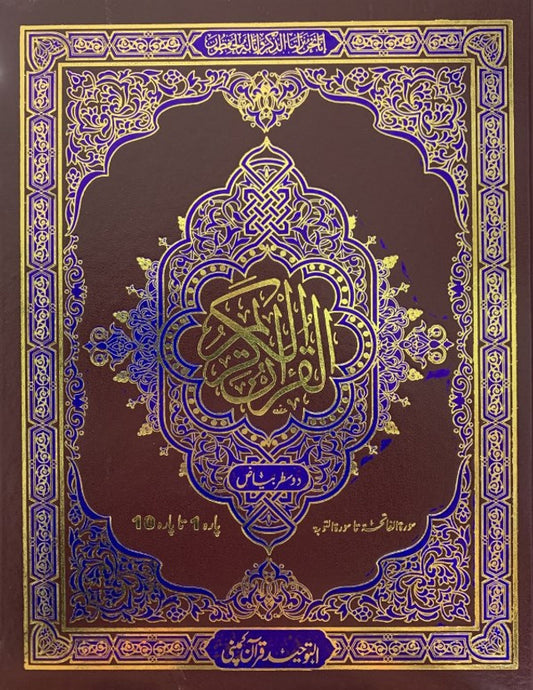 إنا نحن نزلنا الذكر وإنا له لحفظون
القرآن الكريم
دو سطر بیاض
سورة الفاتحۃ تا سورة التوبۃ
پارہ 1 تا پارہ 10
التوحید قرآن کمپنی